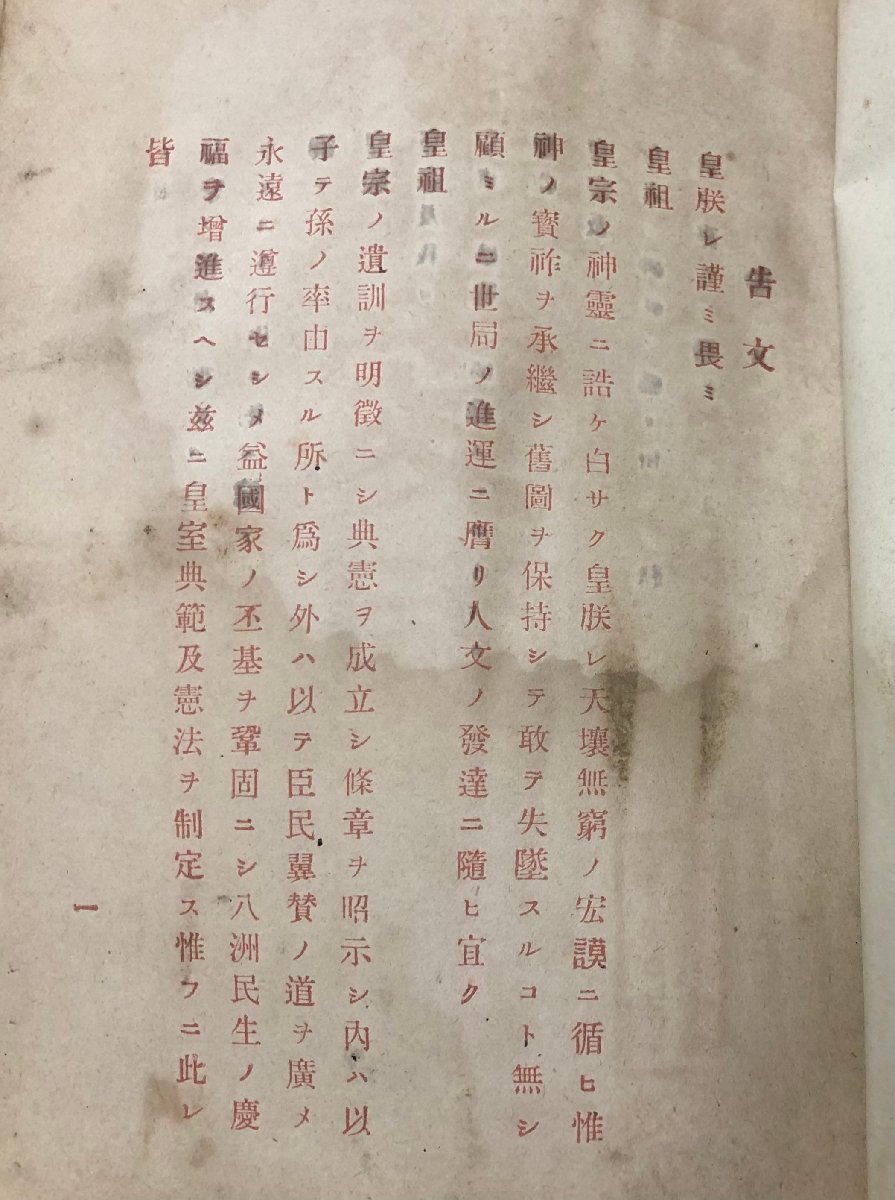 告文
皇朕レ謹ミ畏ミ
皇祖
皇宗ノ神靈ニ誥ケ白サク皇朕レ天壤無窮ノ宏謨ニ循ヒ惟
神ノ寶祚ヲ承繼シ舊圖ヲ保持シテ敢テ失墜スルコト無シ
顧ミルニ世局ノ進運ニ膺リ人文ノ發達ニ隨ヒ宜ク
皇祖
皇宗ノ遺訓ヲ明徵ニシ典憲ヲ成立シ條章ヲ昭示シ內ハ以
子テ孫ノ率由スル所ト爲シ外ハ以テ臣民翼贊ノ道ヲ廣メ
永遠ニ遵行セシメ益國家ノ丕基ヲ鞏固ニシ八洲民生ノ慶
福ヲ增進スヘシ茲ニ皇室典範及憲法ヲ制定ス惟フニ此レ
皆
一